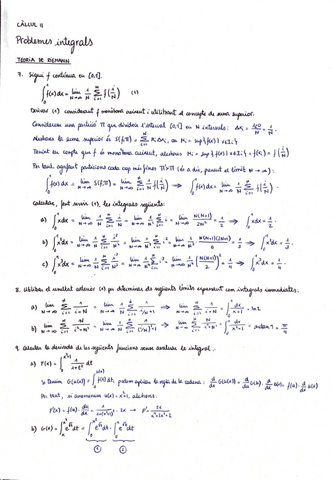 CÀLCUL II
Problemes integrals
TEORIA DE RIEMANN
7. Sigui f contínua en [0,1].
∫₀¹ f(x)dx = lim_{N→∞} 1/N Σ_{i=1}^{N} f(i/N) (*)
Derivar (*) considerant f monòtona creixent i utilitzant el concepte de suma superior.
Considerem una partició Π que divideix l'interval [0,1] en N intervals: Δxᵢ = = 1/N.
Aleshores la suma superior és S(f;Π) = Σ_{i=1}^{N} Kᵢ Δxᵢ, on Kᵢ = sup{f(x) | x∈Iᵢ}
Tenint en compte que f és monòtona creixent, aleshores Kᵢ = sup{f(x) | x∈Iᵢ} = f(xᵢ) = f(i/N)
Per tant, agafant particions cada cop més fines (és a dir, prenent el límit N→∞):
∫₀¹ f(x)dx = lim_{N→∞} S(f;Π) = lim_{N→∞} Σ_{i=1}^{N} 1/N f(i/N) ⇒ ∫₀¹ f(x)dx = lim_{N→∞} 1/N Σ_{i=1}^{N} f(i/N).
Calculeu, fent servir (*), les integrals següents:
a) ∫₀¹ xdx = lim_{N→∞} 1/N Σ_{i=1}^{N} i/N = lim_{N→∞} 1/N² Σ_{i=1}^{N} i = lim_{N→∞} N(N+1)/2N² = 1/2 ⇒ ∫₀¹ xdx = 1/2.
b) ∫₀¹ x²dx = lim_{N→∞} 1/N Σ_{i=1}^{N} i²/N² = lim_{N→∞} 1/N³ Σ_{i=1}^{N} i² = lim_{N→∞} 1/N³ N(N+1)(2N+1)/6 = 1/3 ⇒ ∫₀¹ x²dx = 1/3.
c) ∫₀¹ x³dx = lim_{N→∞} 1/N Σ_{i=1}^{N} i³/N³ = lim_{N→∞} 1/N⁴ Σ_{i=1}^{N} i³ = lim_{N→∞} 1/N⁴ [N(N+1)/2]² = 1/4 ⇒ ∫₀¹ x³dx = 1/4.
8. Utilitzeu el resultat anterior (*) per determinar els següents límits expressant com integrals convenients:
a) lim_{N→∞} Σ_{i=1}^{N} 1/(i+N) = lim_{N→∞} 1/N Σ_{i=1}^{N} 1/(i/N+1) = lim_{N→∞} Σ_{i=1}^{N} 1/(i+N) = ∫₀¹ dx/(x+1) = ln 2
b) lim_{N→∞} Σ_{i=1}^{N} N/(i²+N²) = lim_{N→∞} 1/N Σ_{i=1}^{N} 1/((i/N)²+1) = lim_{N→∞} Σ_{i=1}^{N} N/(i²+N²) = ∫₀¹ dx/(x²+1) = arctan 1 = π/4
9. Calculeu la derivada de les següents funcions sense avaluar la integral.
a) F(x) =
Si tenim G(u(x)) = f(t)dt, podem aplicar la regla de la cadena: d/dx G(u(x)) = d/du G(u) · d/dx u(x) = f(u) · d/dx u(x)
Per tant, si anomenem u(x) = x²+1, aleshores:
F'(x) = f(u) · du/dx = · 2x ⇒ F' =
b) G(x) =
① ②